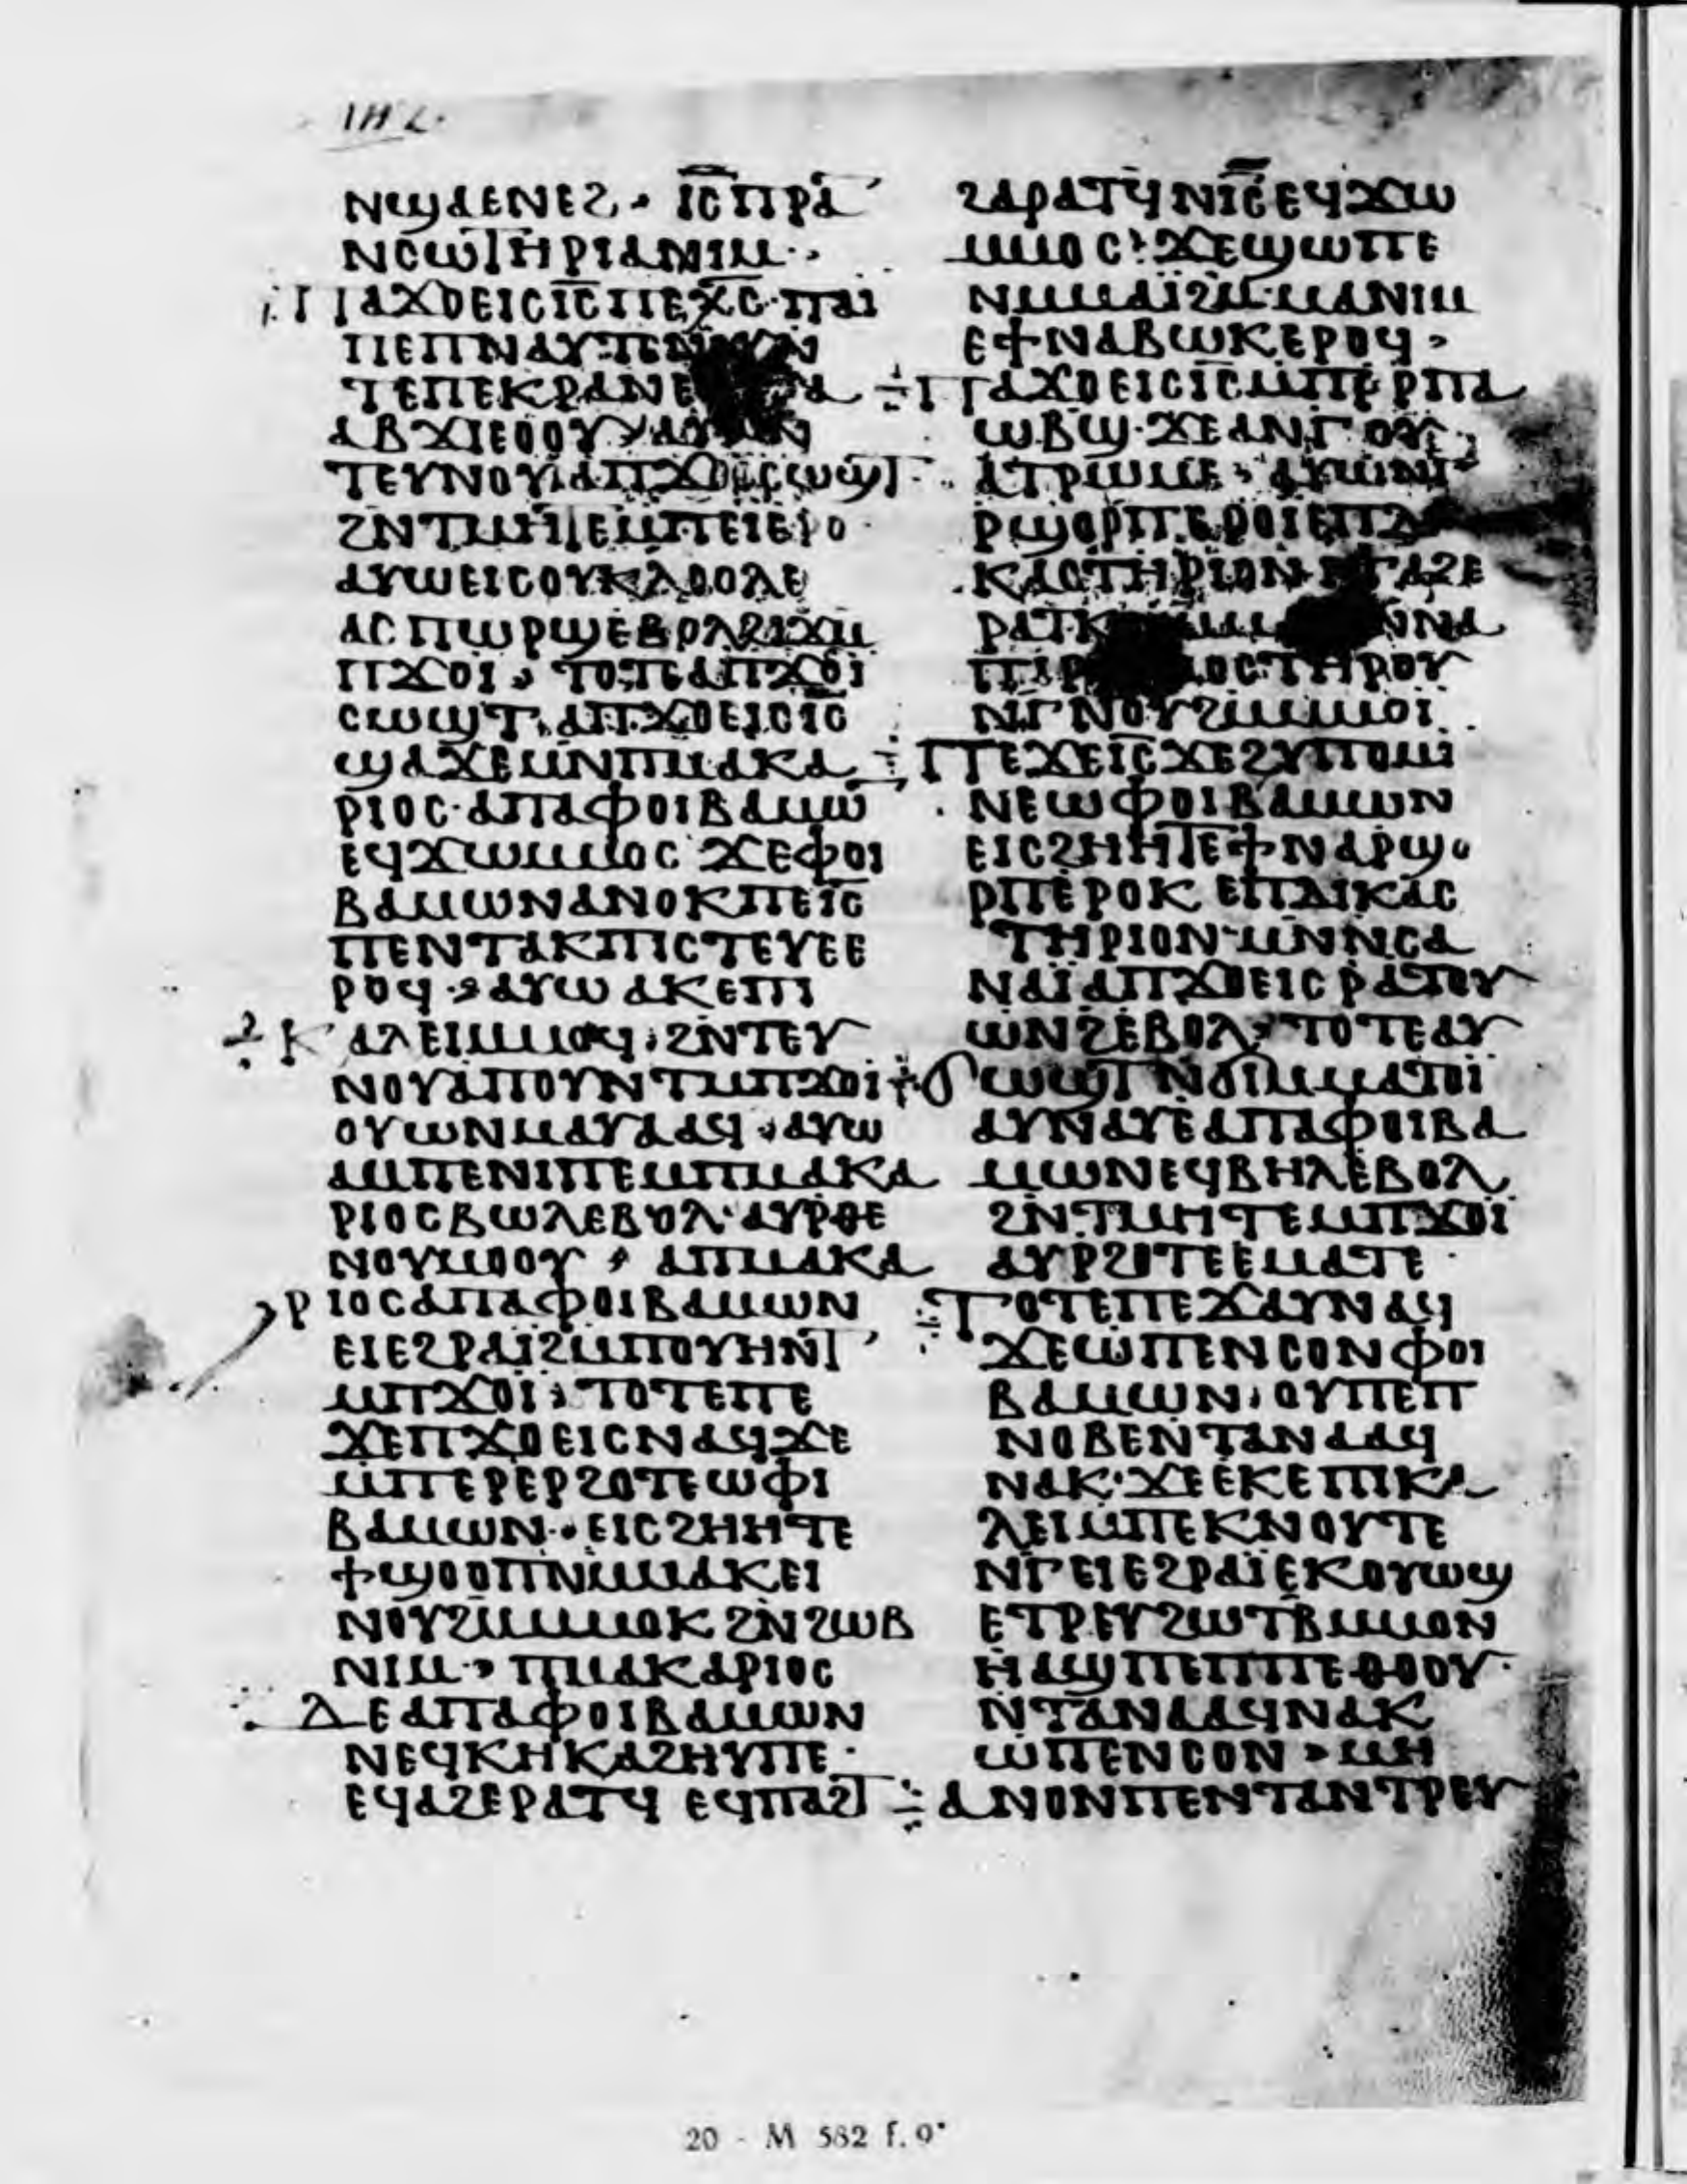 ⲓⲏ
ⲛϣⲁⲉⲛⲉϩ · ⲓ̅ⲥ̅ ⲡⲣⲁ
ⲛⲥⲱⲧⲏⲣⲓⲁⲛⲓⲙ ··
ⲡⲁϫⲟⲉⲓⲥⲓ̅ⲥ̅ⲡⲉⲭ̅ⲥ̅·ⲡⲁⲓ
ⲡⲉⲡⲛⲁⲩ
ⲧⲉⲡⲉⲕⲣⲁⲛ
ⲁⲃϫⲓⲉⲟⲟⲩ
ⲧⲉⲩⲛⲟⲩⲁⲡϫⲟⲉⲓⲥϭⲱϣⲧ
ϩⲛⲧⲙⲏⲧⲉⲙⲡⲉⲓⲉⲣⲟ ·
ⲁⲩⲱⲉⲓⲥⲟⲩⲕⲗⲟⲟⲗⲉ
ⲁⲥⲡⲱⲣϣⲉⲃⲟⲗϩⲓϫⲙ
ⲡϫⲟⲓ · ⲧⲟⲧⲉⲁⲡϫⲟⲓ
ϭⲱϣⲧ · ⲁⲡϫⲟⲉⲓⲥⲓ̅ⲥ̅
ϣⲁϫⲉⲙⲛⲡⲙⲁⲕⲁ
ⲣⲓⲟⲥ·ⲁⲡⲁⲫⲟⲓⲃⲁⲙⲱ̅
ⲉϥϫⲱⲙⲙⲟⲥ ϫⲉⲫⲟⲓ
ⲃⲁⲙⲱⲛⲁⲛⲟⲕⲡⲉⲓ̅ⲥ̅
ⲡⲉⲛⲧⲁⲕⲡⲓⲥⲧⲉⲩⲉⲉ
ⲣⲟϥ · ⲁⲩⲱ ⲁⲕⲉⲡⲓ
ⲕⲁⲗⲉⲓⲙⲙⲟϥ · ϩⲛⲧⲉⲩ
ⲛⲟⲩⲁⲡⲟⲩⲛⲧⲙⲡϫⲟⲓ
ⲟⲩⲱⲛⲙⲁⲩⲁⲁϥ · ⲁⲩⲱ
ⲁⲙⲡⲉⲛⲓⲡⲉⲙⲡⲙⲁⲕⲁ
ⲣⲓⲟⲥⲃⲱⲗⲉⲃⲟⲗ·ⲁⲩⲣⲑⲉ
ⲛⲟⲩⲙⲟⲟⲩ · ⲁⲡⲙⲁⲕⲁ
ⲣⲓⲟⲥⲁⲡⲁⲫⲟⲓⲃⲁⲙⲱⲛ
ⲉⲓⲉϩⲣⲁⲓ̈ϩⲙⲡⲟⲩⲏⲛⲧ
ⲙⲡϫⲟⲓ · ⲧⲟⲧⲉⲡⲉ
ϫⲉⲡϫⲟⲉⲓⲥⲛⲁϥϫⲉ
ⲙⲡⲉⲣⲉⲣϩⲟⲧⲉⲱⲫⲓ
ⲃⲁⲙⲱⲛ · ⲉⲓⲥϩⲏⲏⲧⲉ
ϯϣⲟⲟⲡⲛⲙⲙⲁⲕⲉⲓ
ⲛⲟⲩϩⲙⲙⲙⲟⲕ ϩⲛϩⲱⲃ
ⲛⲓⲙ · ⲡⲙⲁⲕⲁⲣⲓⲟⲥ
ⲇⲉⲁⲡⲁⲫⲟⲓⲃⲁⲙⲱⲛ
ⲛⲉϥⲕⲏⲕⲁϩⲏⲩⲡⲉ ·
ⲉϥⲁϩⲉⲣⲁⲧϥ ⲉϥⲡⲁϩⲧ
ϩⲁⲣⲁⲧϥⲛⲓ̅ⲥ̅ⲉϥϫⲱ
ⲙⲙⲟⲥ· ϫⲉϣⲱⲡⲉ
ⲛⲙⲙⲁⲓ̈ϩⲙ·ⲙⲁⲛⲓⲙ
ⲉϯⲛⲁⲃⲱⲕⲉⲣⲟϥ ·
ⲡⲁϫⲟⲉⲓⲥⲓ̅ⲥ̅ⲙⲡⲣⲣⲡⲁ
ⲱⲃϣ·ϫⲉⲁⲛⲅ ⲟⲩ
ⲁⲧⲣⲱⲙⲉ ·
ⲣϣⲟⲣⲡ·ⲉⲣⲟⲓⲉⲡⲇⲓ
ⲕⲁⲥⲧⲏⲣⲓⲟⲛ ⲛⲅⲁϩⲉ
ⲣⲁⲧⲕ
ⲛⲅⲛⲟⲩϩⲙⲙⲙⲟⲓ̈ ·
ⲡⲉϫⲉⲓ̅ⲥ̅ϫⲉϩⲩⲡⲟⲙⲓ
ⲛⲉⲱⲫⲟⲓⲃⲁⲙⲱⲛ
ⲉⲓⲥϩⲏⲏⲧⲉϯⲛⲁⲣϣⲟ
ⲣⲡⲉⲣⲟⲕ ⲉⲡⲇⲓⲕⲁⲥ
ⲧⲏⲣⲓⲟⲛ·ⲙⲛⲛⲥⲁ
ⲛⲁⲓ̈ⲁⲡϫⲟⲉⲓⲥⲣⲁⲧⲟⲩ
ⲱⲛϩⲉⲃⲟⲗ· ⲧⲟⲧⲉⲁⲩ
ϭⲱϣⲧⲛϭⲓⲙⲙⲁⲧⲟⲓ
ⲁⲩⲛⲁⲩⲉⲁⲡⲁⲫⲟⲓⲃⲁ
ⲙⲱⲛⲉϥⲃⲏⲗⲉⲃⲟⲗ
ϩⲛ·ⲧⲙⲏⲧⲉⲙⲡϫⲟⲓ
ⲁⲩⲣϩⲟⲧⲉⲉⲙⲁⲧⲉ ·
ⲧⲟⲧⲉⲡⲉϫⲁⲩⲛⲁϥ
ϫⲉⲱⲡⲉⲛⲥⲟⲛⲫⲟⲓ
ⲃⲁⲙⲱⲛ·ⲟⲩⲡⲉⲡ
ⲛⲟⲃⲉⲛⲧⲁⲛⲁⲁϥ
ⲛⲁⲕ·ϫⲉⲉⲕⲉⲡⲓⲕⲁ
ⲗⲉⲓⲙⲡⲉⲕⲛⲟⲩⲧⲉ
ⲛⲅⲉⲓⲉϩⲣⲁⲓ̈ⲉⲕⲟⲩⲱϣ
ⲉⲧⲣⲉⲩϩⲱⲧⲃⲙⲙⲟⲛ
ⲏⲁϣⲡⲉⲡⲡⲉⲑⲟⲟⲩ·
ⲛⲧⲁⲛⲁⲁϥⲛⲁⲕ
ⲱⲡⲉⲛⲥⲟⲛ · ⲙⲏ
ⲁⲛⲟⲛⲡⲉⲛⲧⲁⲛⲧⲣⲉⲩ
20 - M 582 f. 9ᵛ